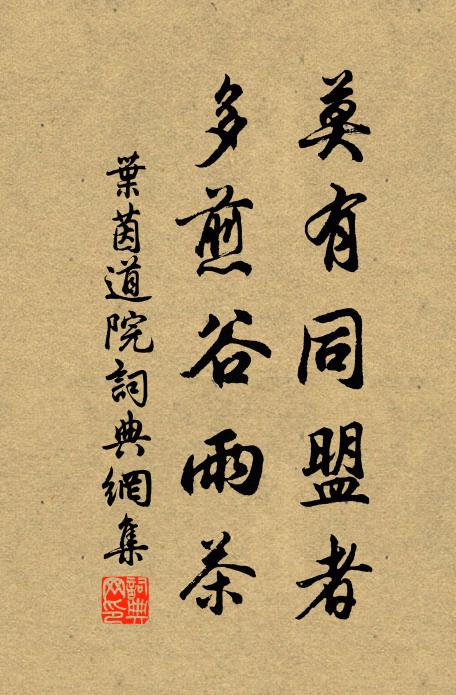 莫有同盟者
多煎谷雨茶
葉茵道院詞典網集
詞典網印